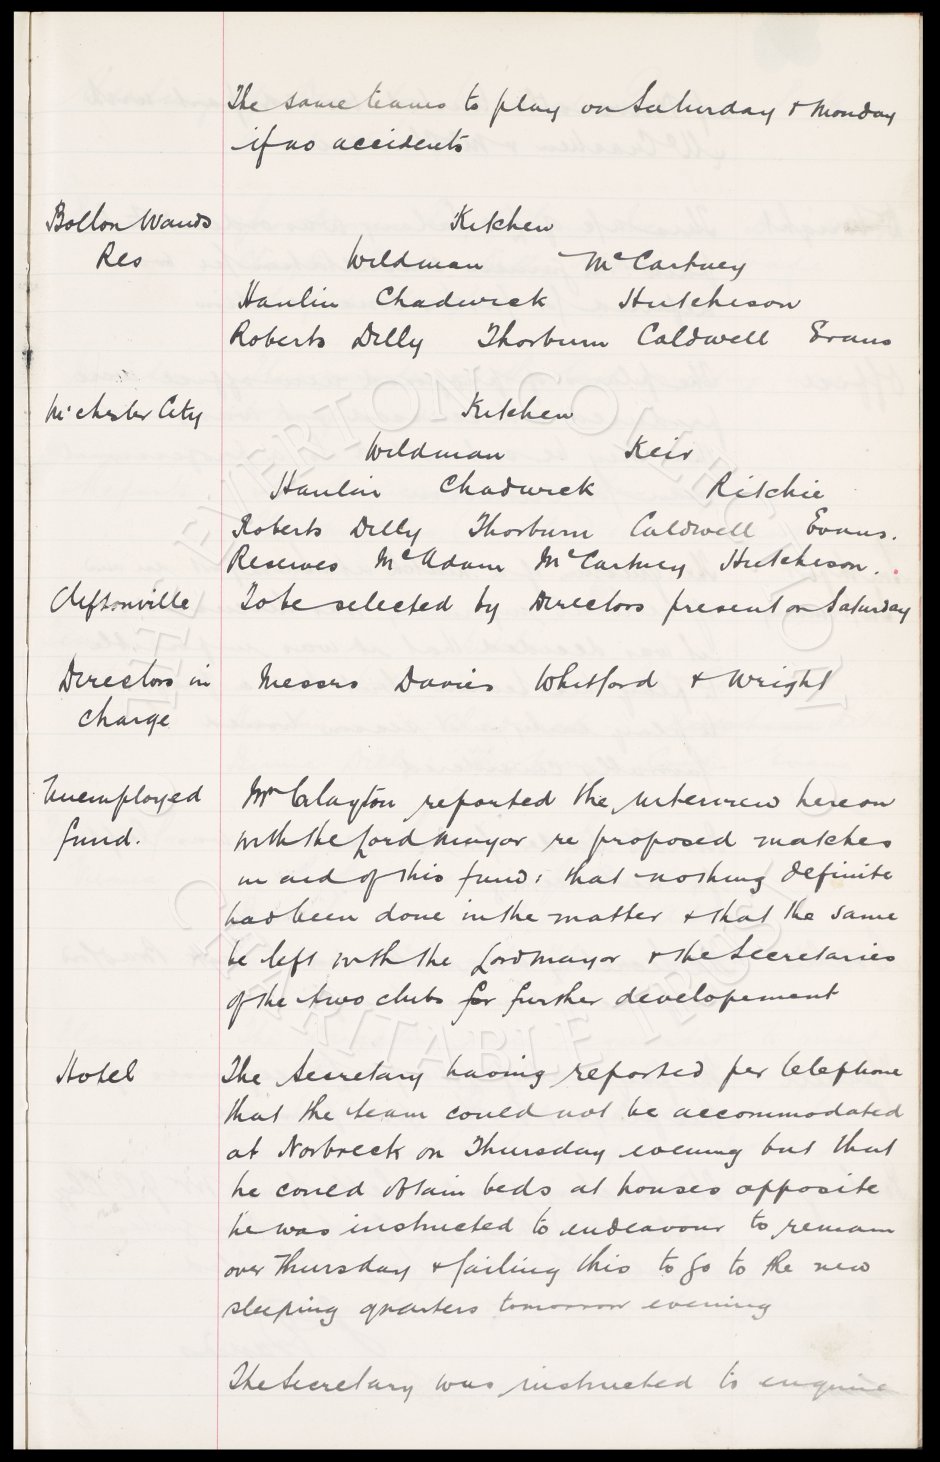 The same teams to play on Saturday & Monday
if no accidents
Bolton Wands Kitchen
Res Wildman McCartney
Hanlin Chadwick Hutcheson
Roberts Dilly Thorburn Caldwell Evans
M'chester City Kitchen
Wildman Keir
Hanlin Chadwick Ritchie
Roberts Dilly Thorburn Caldwell Evans.
Reserves McAdam McCartney Hutcheson.
Cliftonville To be selected by Directors present on Saturday
Directors in Messrs Davies Whitford & Wright
charge
Unemployed Mr Clayton reported the interview here on
fund. with the Lord Mayor re proposed matches
in aid of this fund: that nothing definite
had been done in the matter & that the same
be left with the Lord Mayor & the Secretaries
of the two clubs for further developement
Hotel The Secretary having reported per telephone
that the team could not be accommodated
at Norbreck on Thursday evening but that
he could obtain beds at houses opposite
he was instructed to endeavour to remain
over Thursday & failing this to go to the new
sleeping quarters tomorrow evening
The Secretary was instructed to enquire
EVERTON COLLECTION
CHARITABLE TRUST